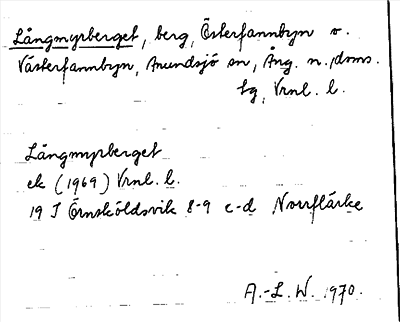 Långmyrberget, berg, Österfannbyn o.
Västerfannbyn, Anundsjö sn, Ång. n., doms.
tg, Vrnl. l.
Långmyrberget
ek (1969) Vrnl. l.
19 J Örnsköldsvik 8-9 c-d Norrflärke
A.-L. W. 1970.